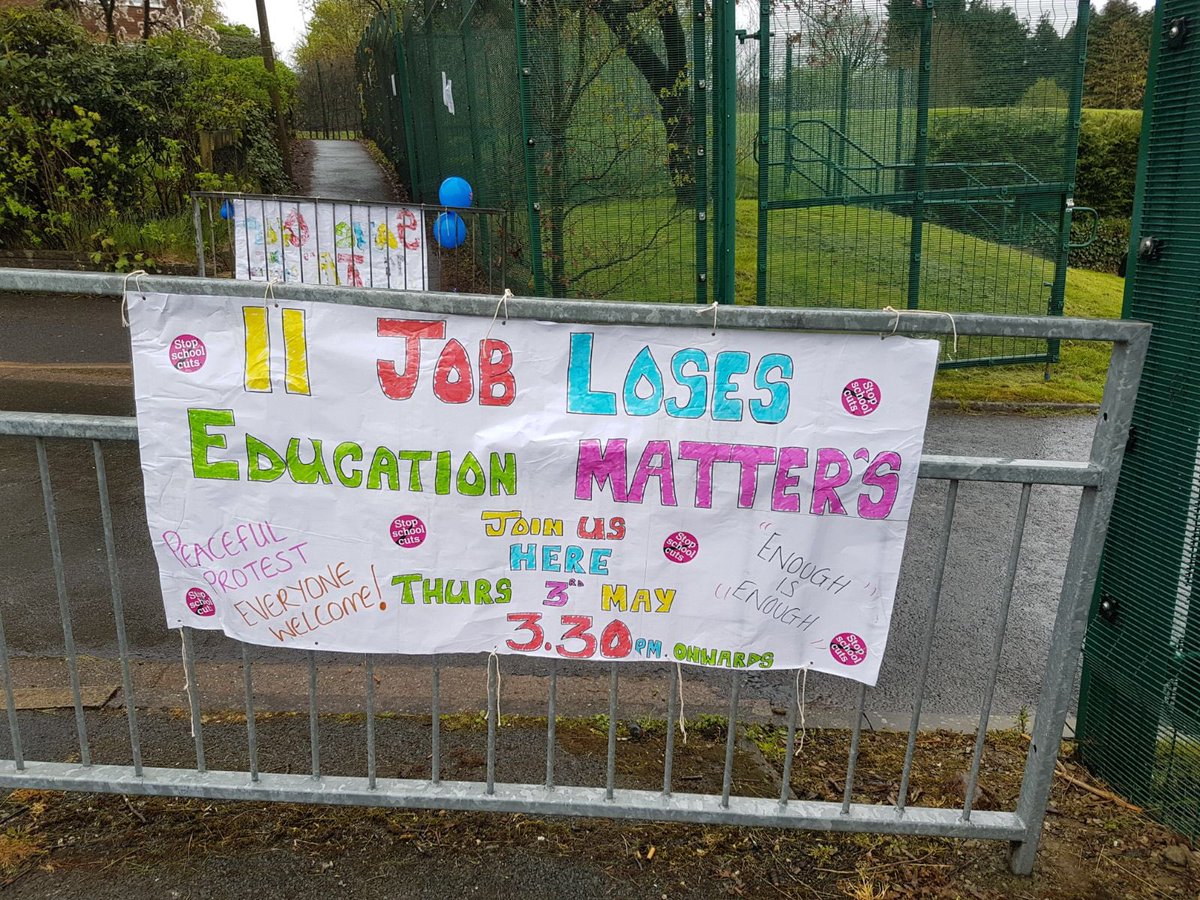 11 JOB LOSES
EDUCATION MATTER'S
JOIN US
HERE
THURS 3RD MAY
3.30 PM. ONWARDS
PEACEFUL
PROTEST
EVERYONE
WELCOME!
"ENOUGH"
IS
"ENOUGH"
Stop
school
cuts
Stop
school
cuts
Stop
school
cuts
Stop
school
cuts
Stop
school
cut
Stop
school
cuts